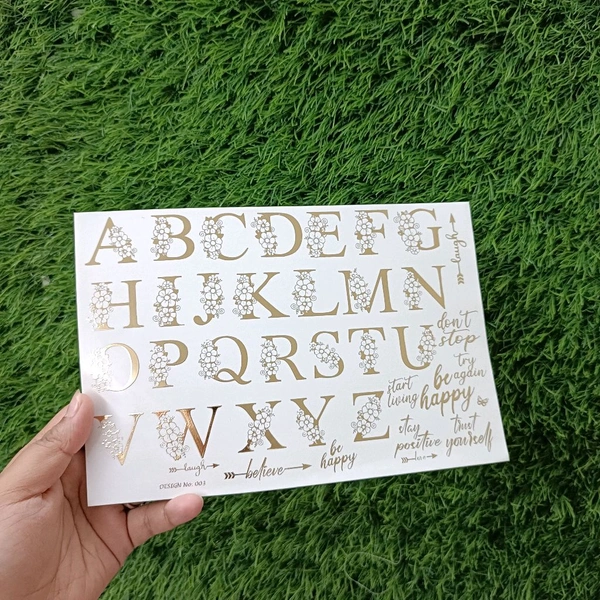 A B C D E F G
laugh
H I J K L M N
don't
stop
O P Q R S T U
try
again
start
living
be
happy
V W X Y Z
stay
positive
trust
yourself
laugh
believe
be
happy
love
DESIGN No: 003